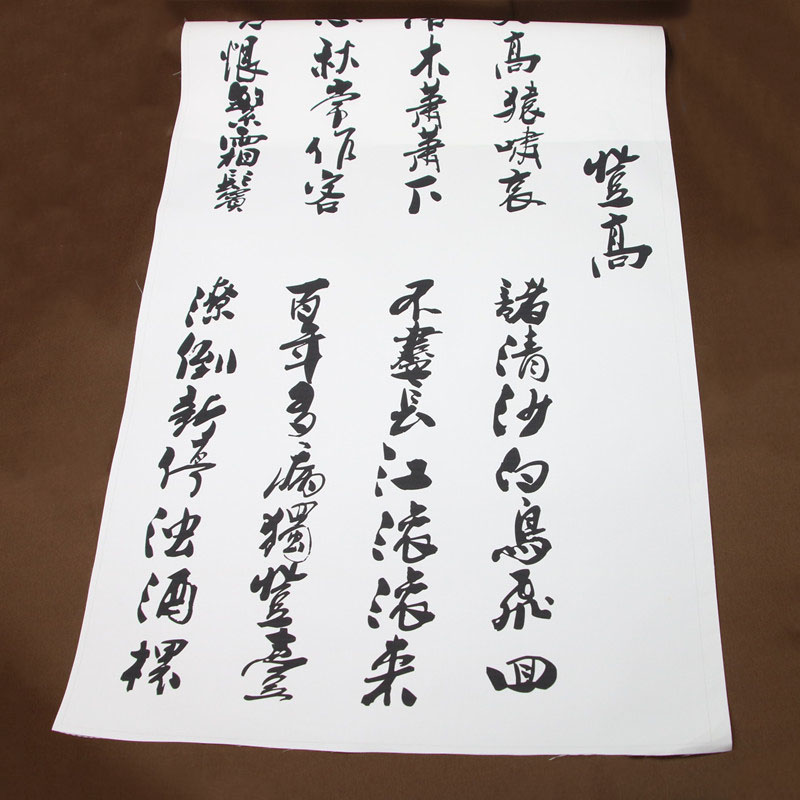 登高
高猿嘯哀
諸清沙白鳥飛回
木蕭蕭下
不盡長江滾滾来
秋常作客
百年多病獨登臺
恨繁霜鬢
潦倒新停浊酒杯